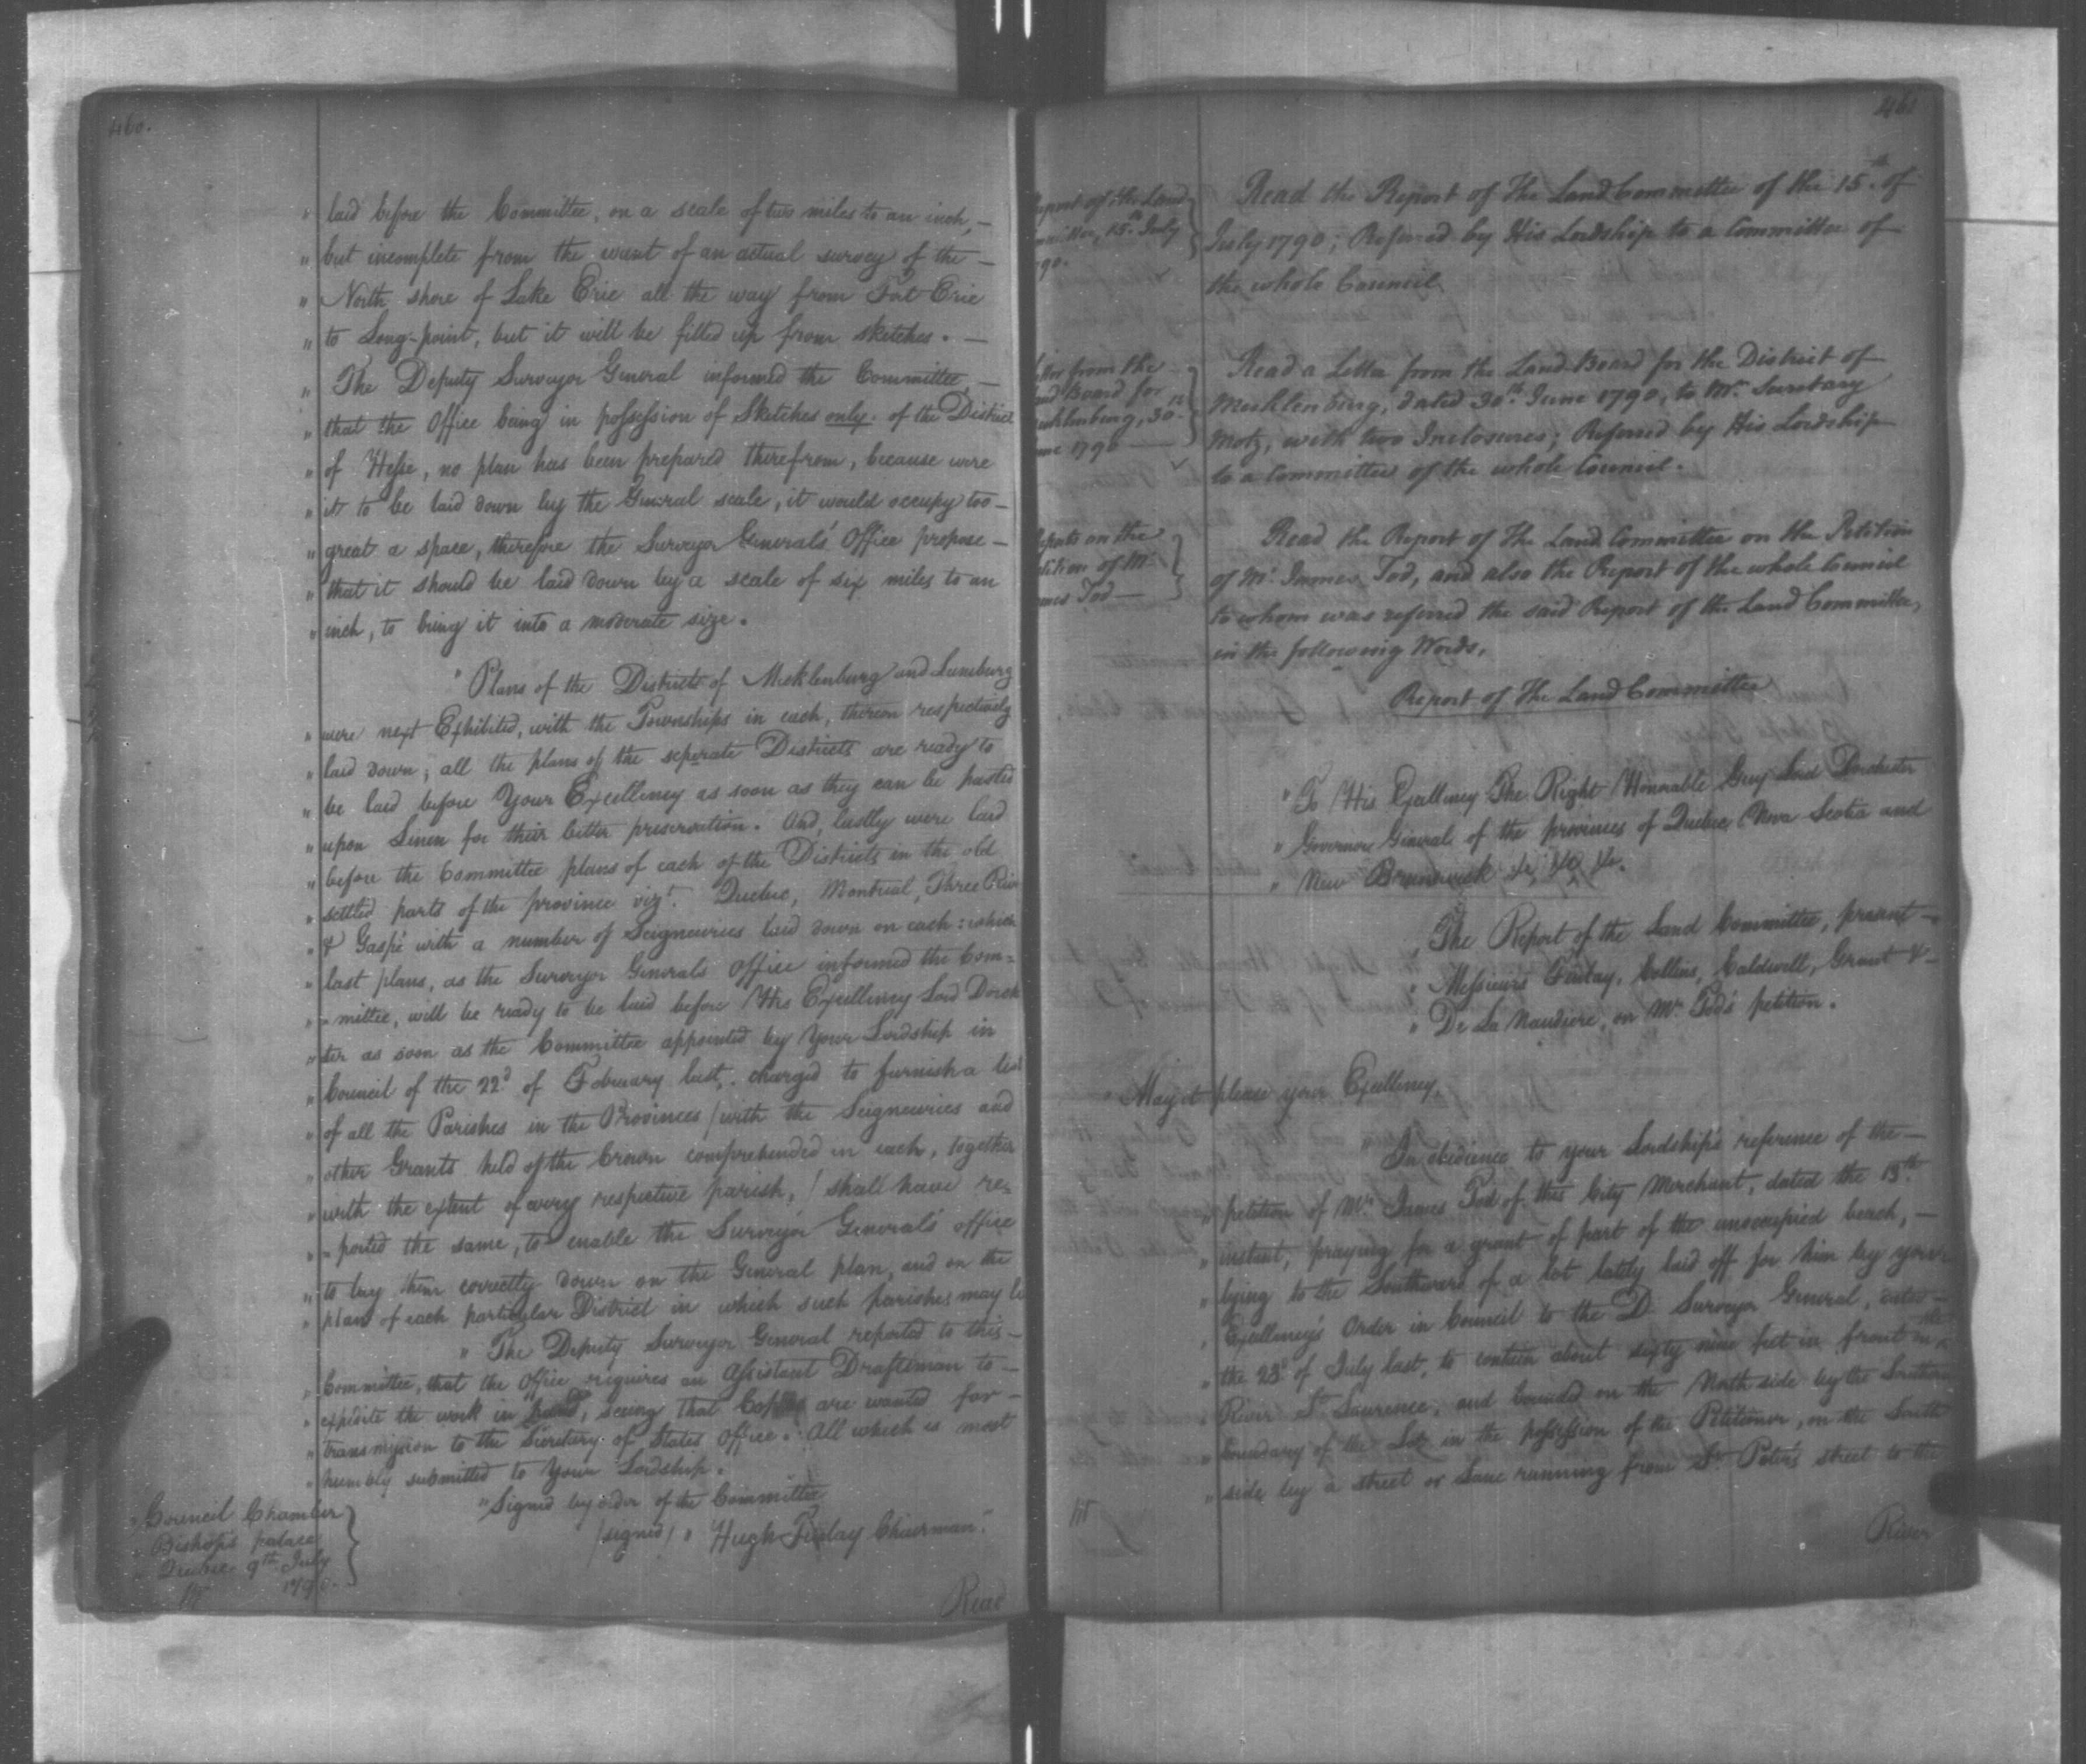 460.
" laid before the Committee, on a scale of two miles to an inch, —
" but incomplete from the want of an actual survey of the —
" North shore of Lake Erie all the way from Fort Erie
" to Long-point, but it will be filled up from sketches. —
" The Deputy Surveyor General informed the Committee, —
" that the Office being in possession of Sketches only of the District
" of Hesse, no plan has been prepared therefrom, because were
" it to be laid down by the General scale, it would occupy too —
" great a space, therefore the Surveyor General's Office propose —
" that it should be laid down by a scale of six miles to an
" inch, to bring it into a moderate size.
" Plans of the Districts of Mecklenburg and Luneburg
" were next Exhibited, with the Townships in each, thereon respectively
" laid down; all the plans of the seperate Districts are ready to
" be laid before Your Excellency as soon as they can be pasted
" upon Linen for their better preservation. And, lastly were laid
" before the Committee plans of each of the Districts in the old
" settled parts of the province vizt. Quebec, Montreal, Three Rive
" & Gaspé with a number of Seigneuries laid down on each: which
" last plans, as the Surveyor Generals Office informed the Com=
" =mittee, will be ready to be laid before His Excellency Lord Dorch
" ter as soon as the Committee appointed by Your Lordship in
" Council of the 22d of February last, charged to furnish a list
" of all the Parishes in the Provinces / with the Seigneuries and
" other Grants held of the Crown comprehended in each, together
" with the extent of every respective parish, / shall have re=
" =ported the same, to enable the Surveyor General's office
" to lay them correctly down on the General plan, and on the
" plan of each particular District in which such parishes may be
" The Deputy Surveyor General reported to this —
" Committee, that the Office requires an Assistant Draftsman to —
" expedite the work in hand, seeing that Copies are wanted for —
" transmission to the Secretary of States Office. All which is most
" humbly submitted to Your Lordship.
" Signed by order of the Committee
/signed/ " Hugh Finlay Chairman."
" Council Chamber
" Bishops palace
" Quebec 9th July
1790.
Read
461
eport of the Land
mmittee, 15th July
790.
Read the Report of the Land Committee of the 15th of
July 1790; Referred by His Lordship to a Committee of
the whole Council.
etter from the
and Board for
ecklenburg, 30th
une 1790 —
Read a Letter from the Land Board for the District of
Mecklenburg, dated 30th June 1790, to Mr Secretary
Motz, with two Inclosures; Referred by His Lordship
to a Committee of the whole Council.
eports on the
etition of Mr
ames Tod —
Read the Report of the Land Committee on the Petition
of Mr James Tod, and also the Report of the whole Council
to whom was referred the said Report of the Land Committee,
in the following Words,
Report of the Land Committee
" To His Excellency The Right Honorable Guy Lord Dorchester
" Governor General of the provinces of Quebec, Nova Scotia and
" New Brunswick &c, &c, &c.
" The Report of the Land Committee, present —
" Messieurs Finlay, Collins, Caldwell, Grant & —
" De La Naudiere, on Mr Tod's petition.
" May it please your Excellency,
" In obedience to your Lordship's reference of the —
" petition of Mr James Tod of this City Merchant, dated the 13th
" instant, praying for a grant of part of the unoccupied beach, —
" lying to the Southward of a lot lately laid off for him by your
" Excellency's Order in Council to the D. Surveyor General, dated —
" the 28th of July last, to contain about sixty nine feet in front on the
" River St Laurence, and bounded on the North side by the Southern
" boundary of the Lot in the possession of the Petitioner, on the South
" side by a street or Lane running from St Peter's street to the
River